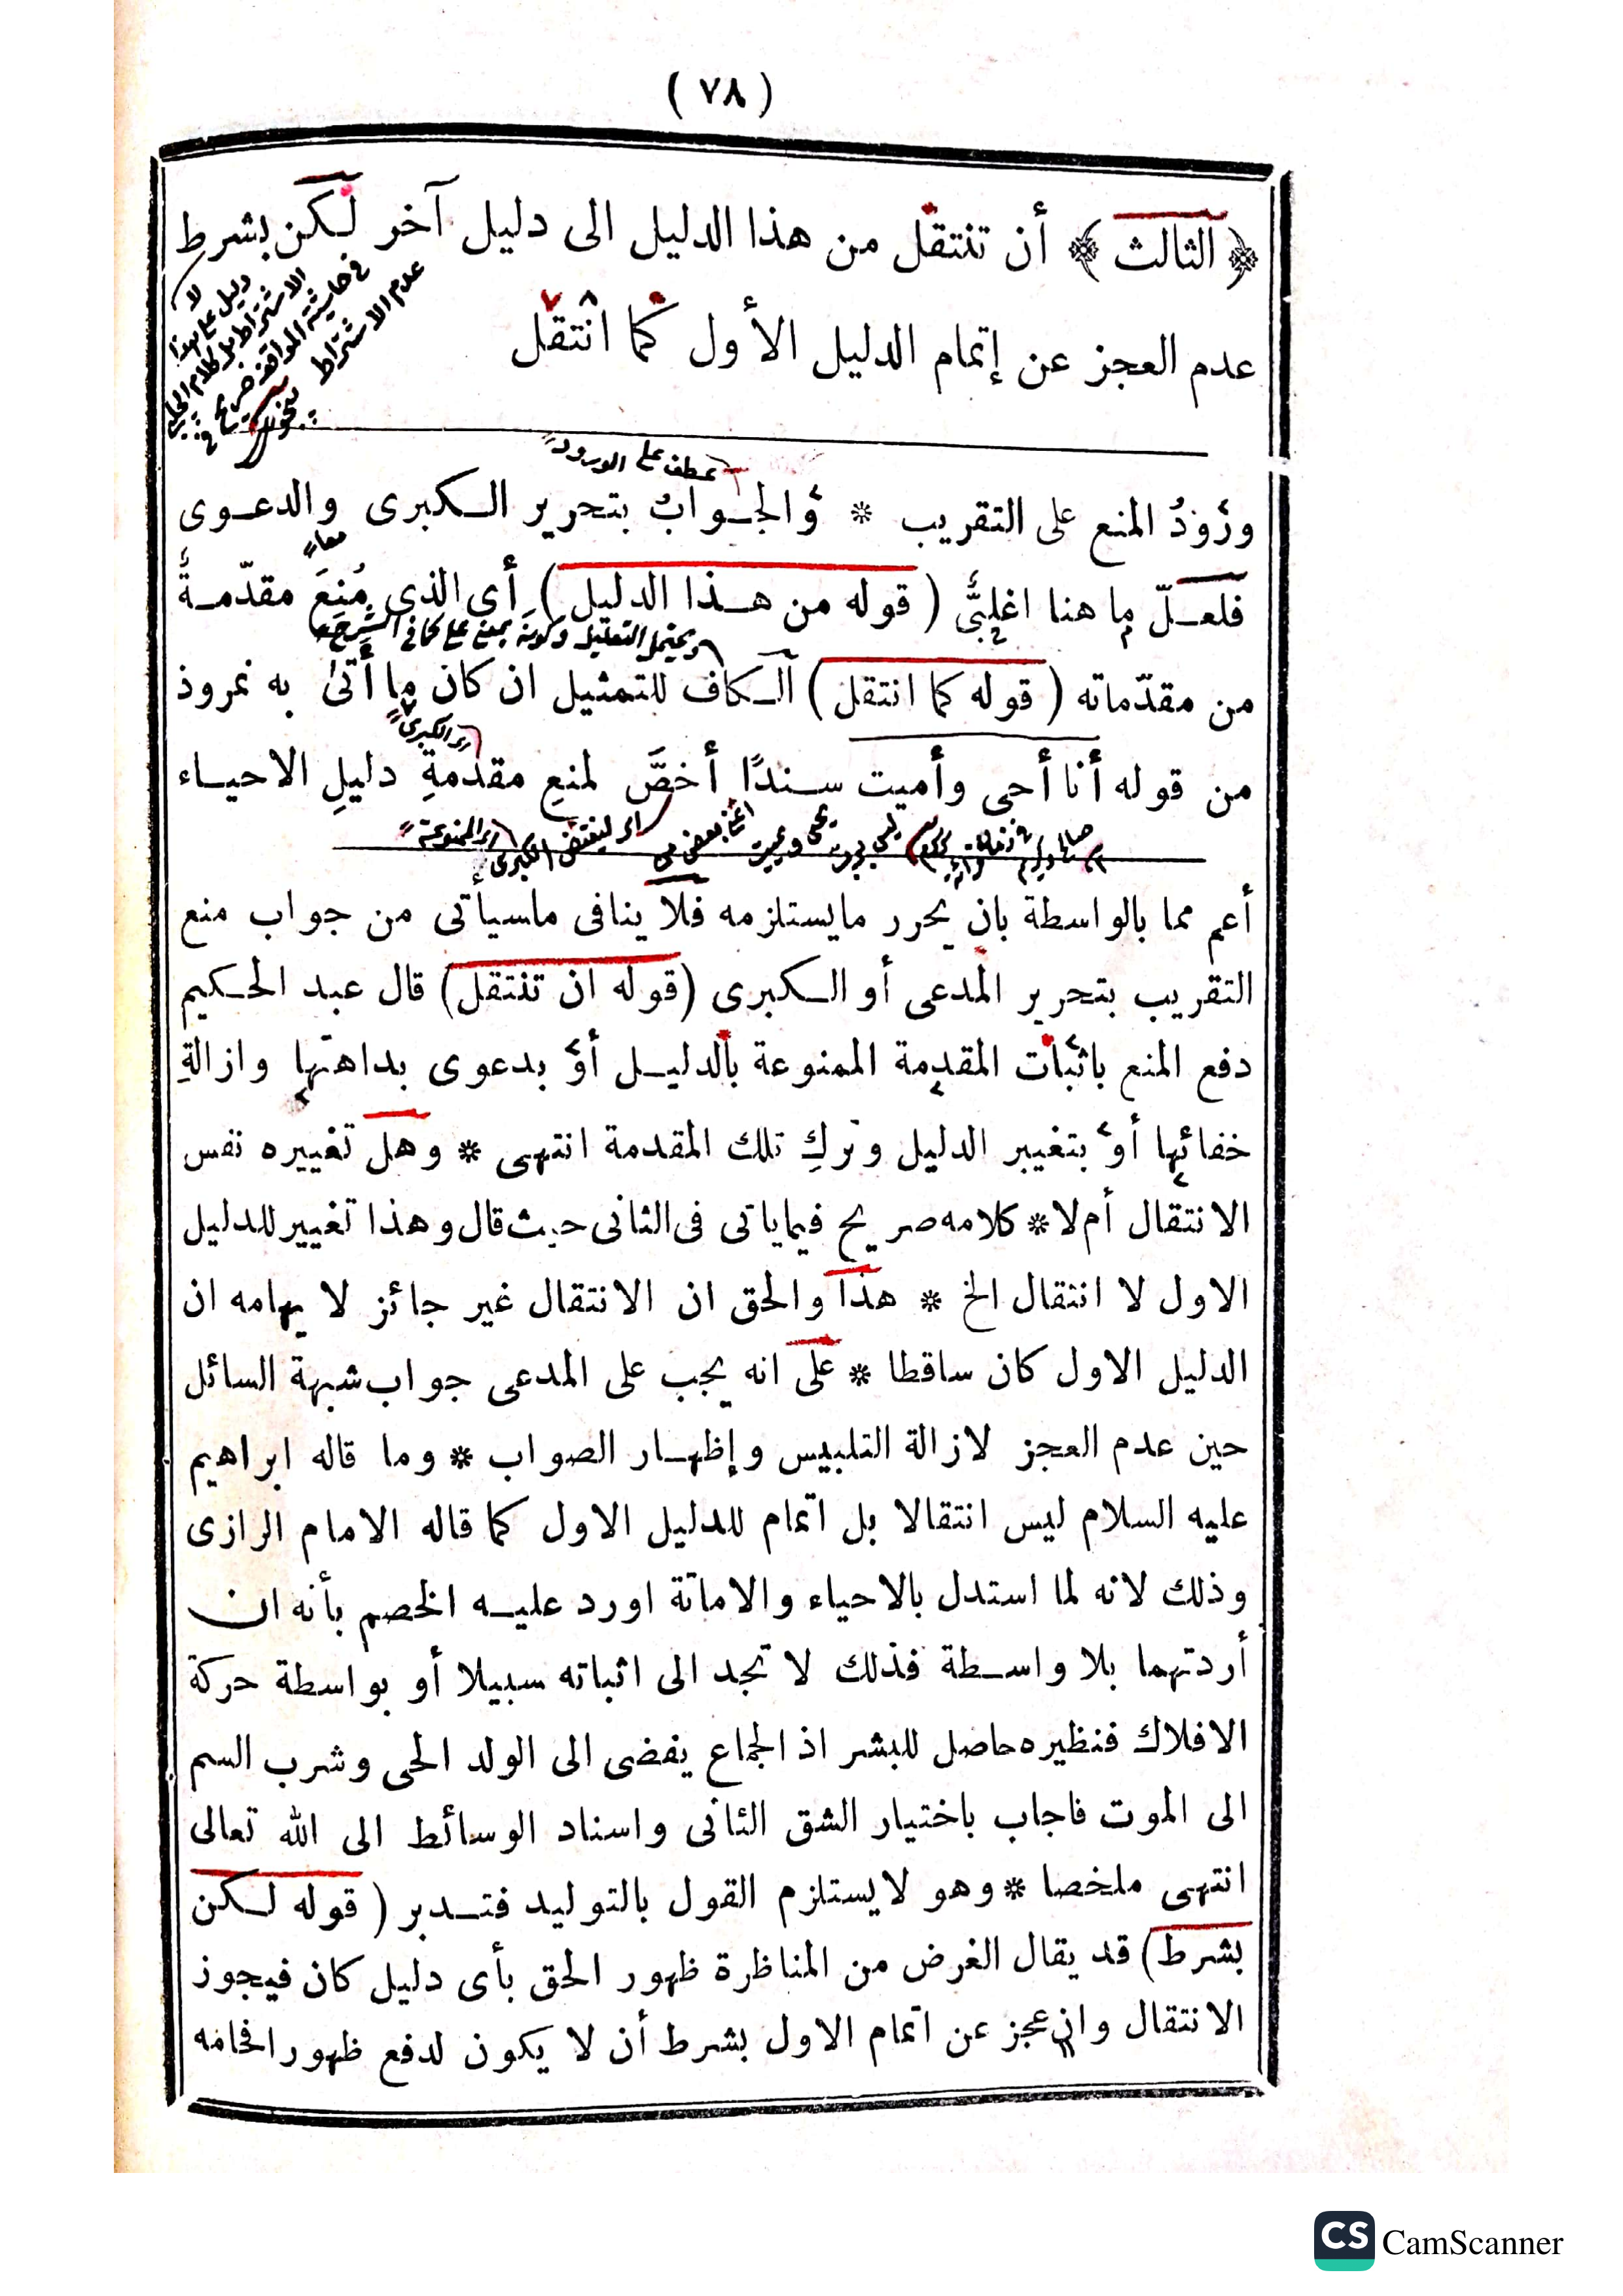 ( ٧٨ )
﴿ الثالث ﴾ أن تنتقل من هذا الدليل الى دليل آخر لكن بشرط
عدم العجز عن إتمام الدليل الأول كما انتقل
لا دليل على هذا
الاشتراط بل كلام
فى حاشية المواقف صريح فى
عدم الاشتراط
عطف على الورود
ورُودُ المنع على التقريب * والجوابُ بتحرير الكبرى والدعوى
معا
فلعلّ ما هنا اغلبىٌّ ( قوله من هذا الدليل ) أى الذى مُنِعَ مقدّمةٌ
ويحتمل التعليل وكونه بمعنى على كما فى الشرح
من مقدّماته ( قوله كما انتقل ) الكاف للتمثيل ان كان ما أتىٰ به نمروذ
اى الكبرى
من قوله أنا أحى وأميت سندًا أخصَّ لمنعِ مقدمةِ دليلِ الاحياء
أعم مما بالواسطة بان يحرر مايستلزمه فلا ينافى ماسيأتى من جواب منع
التقريب بتحرير المدعى أو الكبرى (قوله ان تنتقل) قال عبد الحكيم
دفع المنع باثبات المقدمة الممنوعة بالدليل أو بدعوى بداهتها وازالةِ
خفائها أو بتغيير الدليل وتركِ تلك المقدمة انتهى * وهل تغييره نفس
الانتقال أم لا * كلامه صريح فيما ياتى فى الثانى حيث قال وهذا تغيير للدليل
الاول لا انتقال الخ * هذا والحق ان الانتقال غير جائز لا يهامه ان
الدليل الاول كان ساقطا * على انه يجب على المدعى جواب شبهة السائل
حين عدم العجز لازالة التلبيس وإظهار الصواب * وما قاله ابراهيم
عليه السلام ليس انتقالا بل اتمام للدليل الاول كما قاله الامام الرازى
وذلك لانه لما استدل بالاحياء والاماتة اورد عليه الخصم بأنه ان
أردتهما بلا واسطة فذلك لا تجد الى اثباته سبيلا أو بواسطة حركة
الافلاك فنظيره حاصل للبشر اذ الجماع يفضى الى الولد الحى وشرب السم
الى الموت فاجاب باختيار الشق الثانى واسناد الوسائط الى الله تعالى
انتهى ملخصا * وهو لايستلزم القول بالتوليد فتدبر ( قوله لكن
بشرط) قد يقال الغرض من المناظرة ظهور الحق بأى دليل كان فيجوز
الانتقال وان عجز عن اتمام الاول بشرط أن لا يكون لدفع ظهور افحامه
CS CamScanner